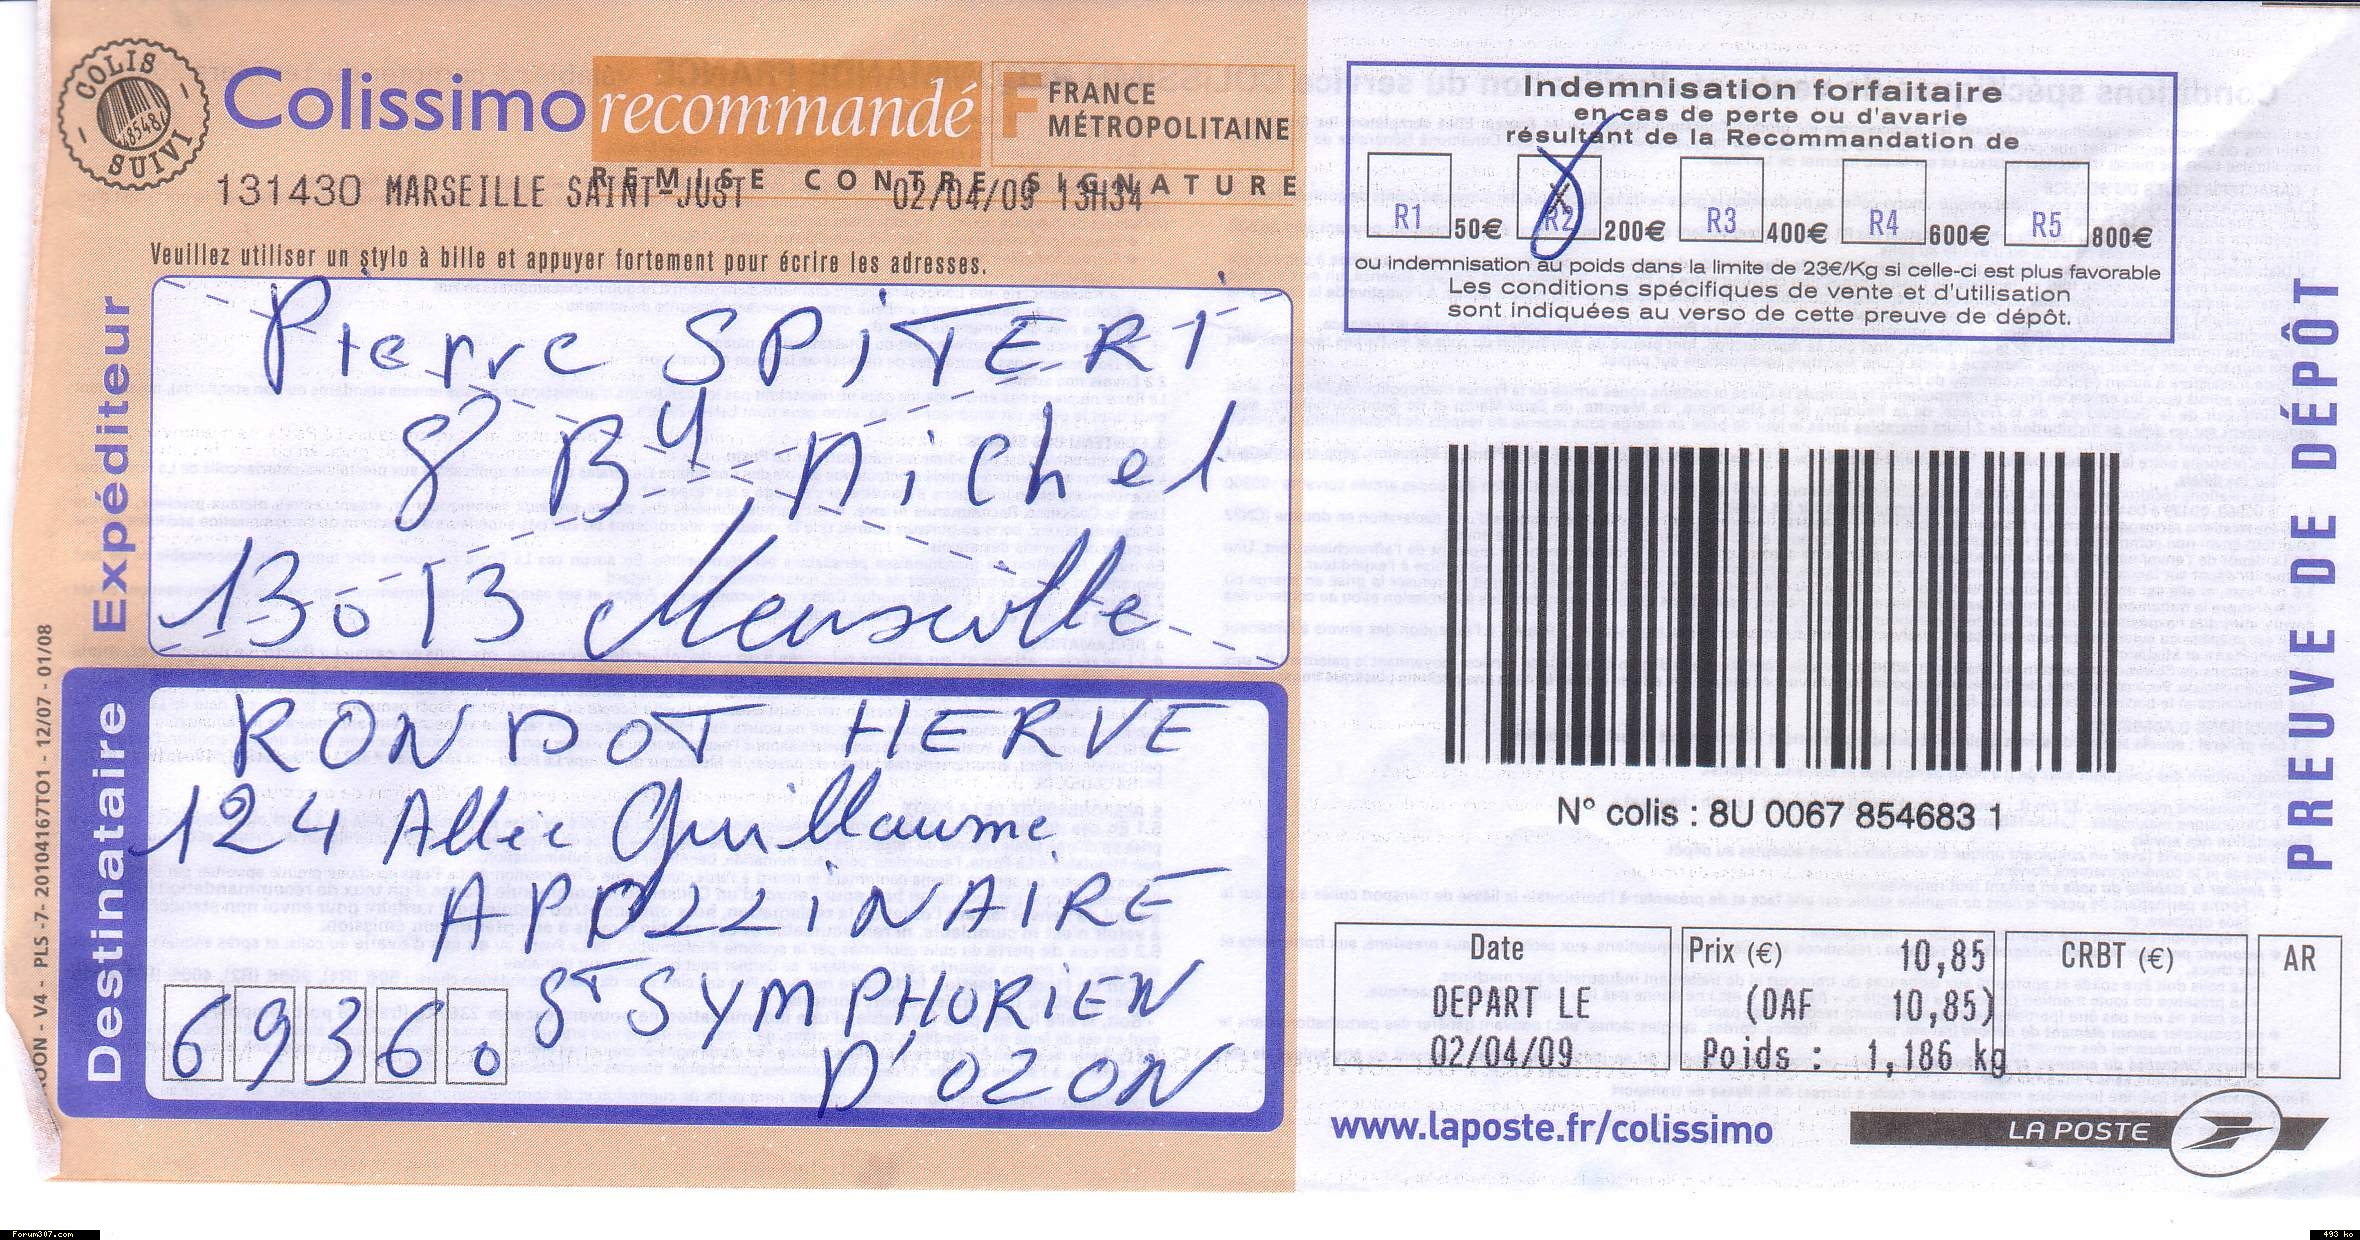 COLIS
48548
SUIVI
Colissimo recommandé F FRANCE MÉTROPOLITAINE
REMISE CONTRE SIGNATURE
131430 MARSEILLE SAINT-JUST 02/04/09 13H34
Veuillez utiliser un stylo à bille et appuyer fortement pour écrire les adresses.
Expéditeur
Pierre SPITERI
8 Bd Michel
13013 Marseille
Destinataire
RONDOT HERVE
124 Allée Guillaume
APOLLINAIRE
69360 St SYMPHORIEN
D'OZON
V4 - PLS -7- 20104167TO1 - 12/07 - 01/08
Indemnisation forfaitaire
en cas de perte ou d'avarie
résultant de la Recommandation de
R1 50€ X R2 200€ R3 400€ R4 600€ R5 800€
ou indemnisation au poids dans la limite de 23€/Kg si celle-ci est plus favorable
Les conditions spécifiques de vente et d'utilisation
sont indiquées au verso de cette preuve de dépôt.
PREUVE DE DÉPÔT
N° colis : 8U 0067 854683 1
Date Prix (€) 10,85 CRBT (€) AR
DEPART LE (DAF 10,85)
02/04/09 Poids : 1,186 kg
www.laposte.fr/colissimo LA POSTE
Forum307.com 493 ko